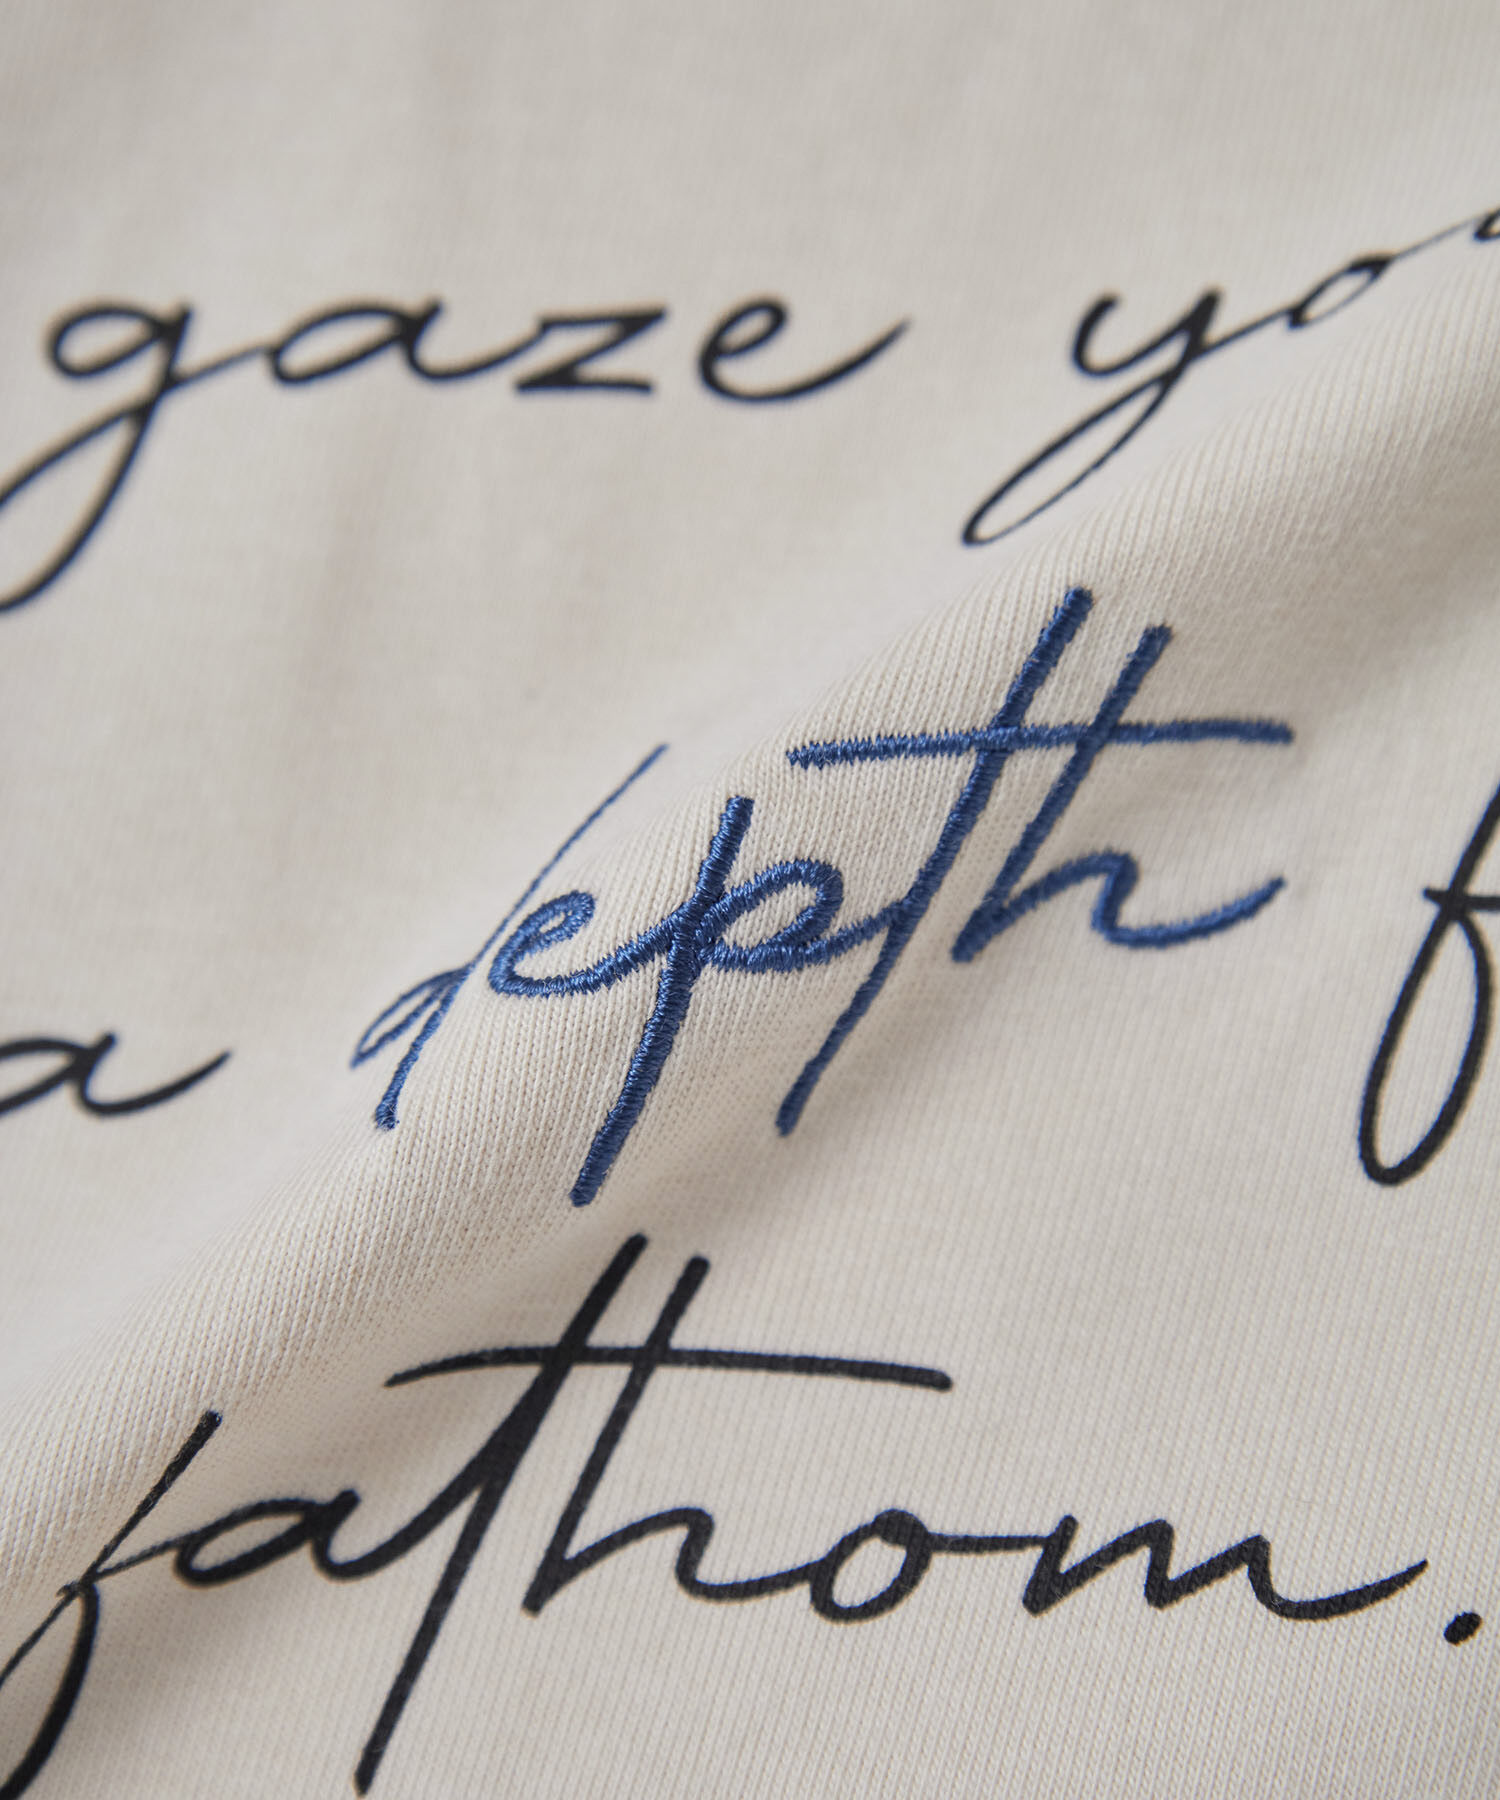 gaze yo
a depth f
fathom.